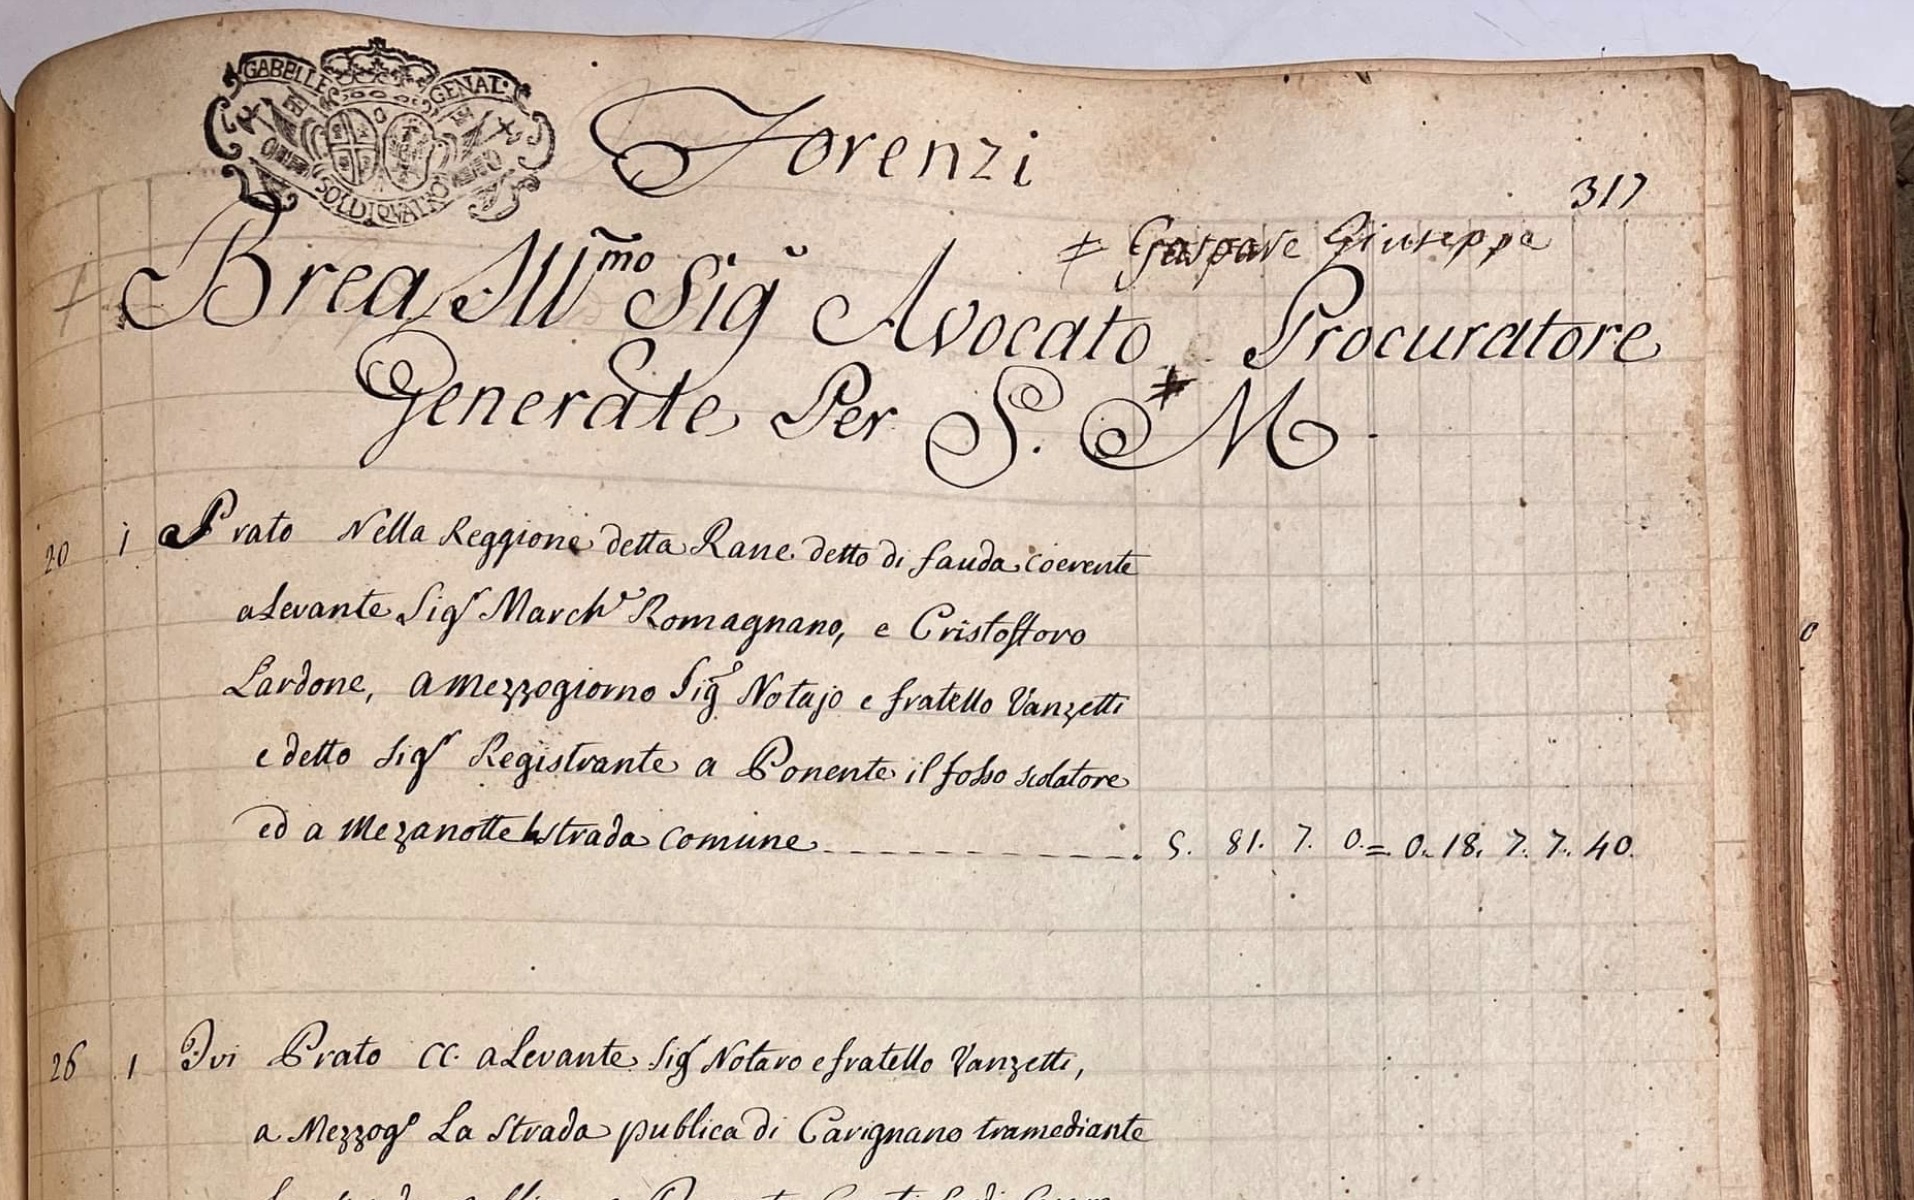 GABELLE GENAL.
SOLDI QUATRO
Forenzi
317
⧧ Gaspare Giuseppe
Brea Ill.mo Sig.r Avocato Procuratore
Generale Per S. ⧧ M.
20 1 Prato Nella Reggione detta Rane detto di fauda coerente
a Levante Sig.r March.e Romagnano, e Cristofforo
Lardone, a mezzogiorno Sig.r Notajo e fratello Vanzetti
e detto Sig.r Registrante a Ponente il fosso scolatore
ed a mezanotte la strada comune S. 81. 7. 0. = 0. 18. 7. 7. 40.
26 1 Ivi Prato CC. a Levante Sig.r Notaro e fratello Vanzetti,
a Mezzog.o La Strada publica di Carignano tramediante